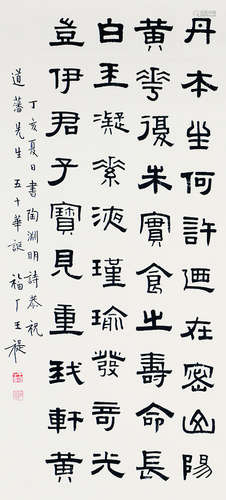 丹木生何許迺在密山陽
黃華復朱實食之壽命長
白玉凝素液瑾瑜發奇光
豈伊君子寶見重我軒黃
丁亥夏日書陶淵明詩恭祝
道藩先生五十華誕 福厂王褆